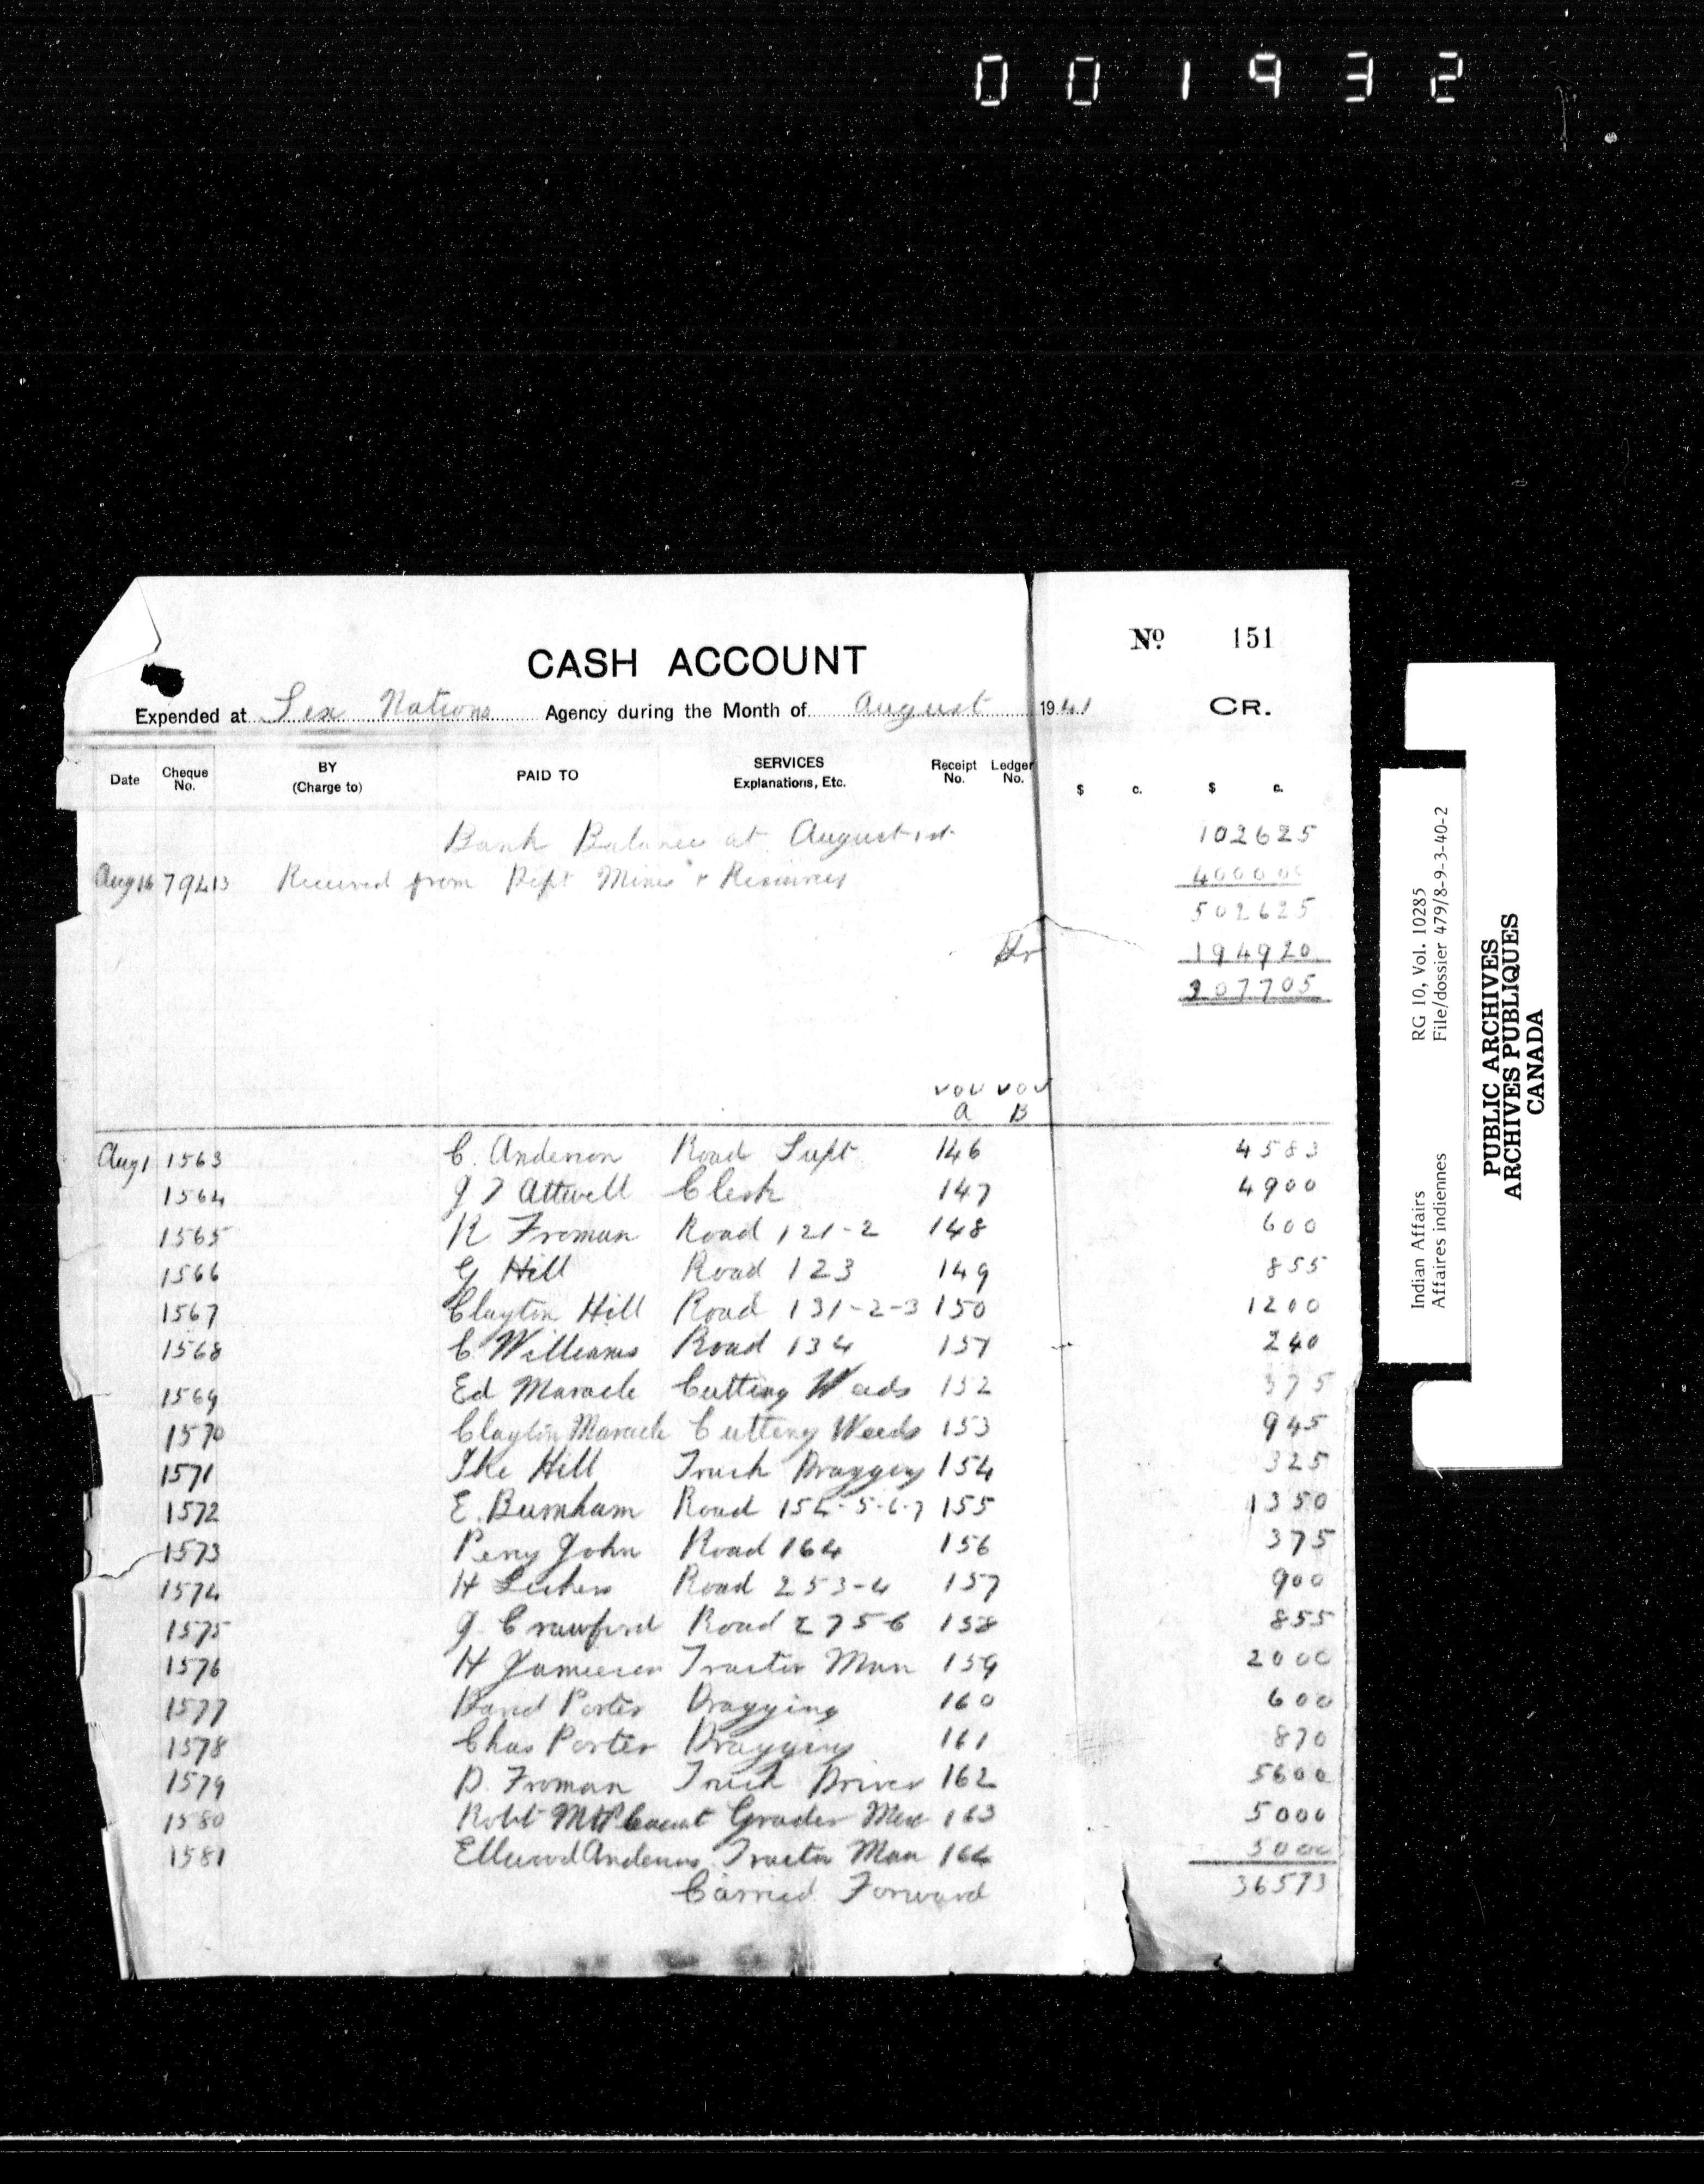 001932
No. 151
CASH ACCOUNT
Expended at Six Nations Agency during the Month of August 1941 CR.
Date Cheque No. BY (Charge to) PAID TO SERVICES Explanations, Etc. Receipt No. Ledger No. $ c. $ c.
Bank Balance at August 1st 102625
Aug 16 79413 Received from Dept Mines & Resources 400000
502625
Dr 194920
307705
VOU VOU
A B
Aug 1 1563 C. Anderson Road Supt 146 4583
1564 J T Attwell Clerk 147 4900
1565 R Froman Road 121-2 148 600
1566 G Hill Road 123 149 855
1567 Clayton Hill Road 131-2-3 150 1200
1568 C Williams Road 134 151 240
1569 Ed Maracle Cutting Weeds 152 375
1570 Clayton Maracle Cutting Weeds 153 945
1571 Ike Hill Truck Dragging 154 325
1572 E. Burnham Road 154-5-6-7 155 1350
1573 Percy John Road 164 156 375
1574 H Road 253-4 157 900
1575 J. Crawford Road 275-6 158 855
1576 H Jamieson Tractor Man 159 2000
1577 David Porter Dragging 160 600
1578 Chas Porter Dragging 161 870
1579 D. Froman Truck Driver 162 5600
1580 Robt Mt Pleasant Grader Man 163 5000
1581 Ellwood Anderson Tractor Man 164 5000
Carried Forward 36573
Indian Affairs RG 10, Vol. 10285
Affaires indiennes File/dossier 479/8-9-3-40-2
PUBLIC ARCHIVES
ARCHIVES PUBLIQUES
CANADA